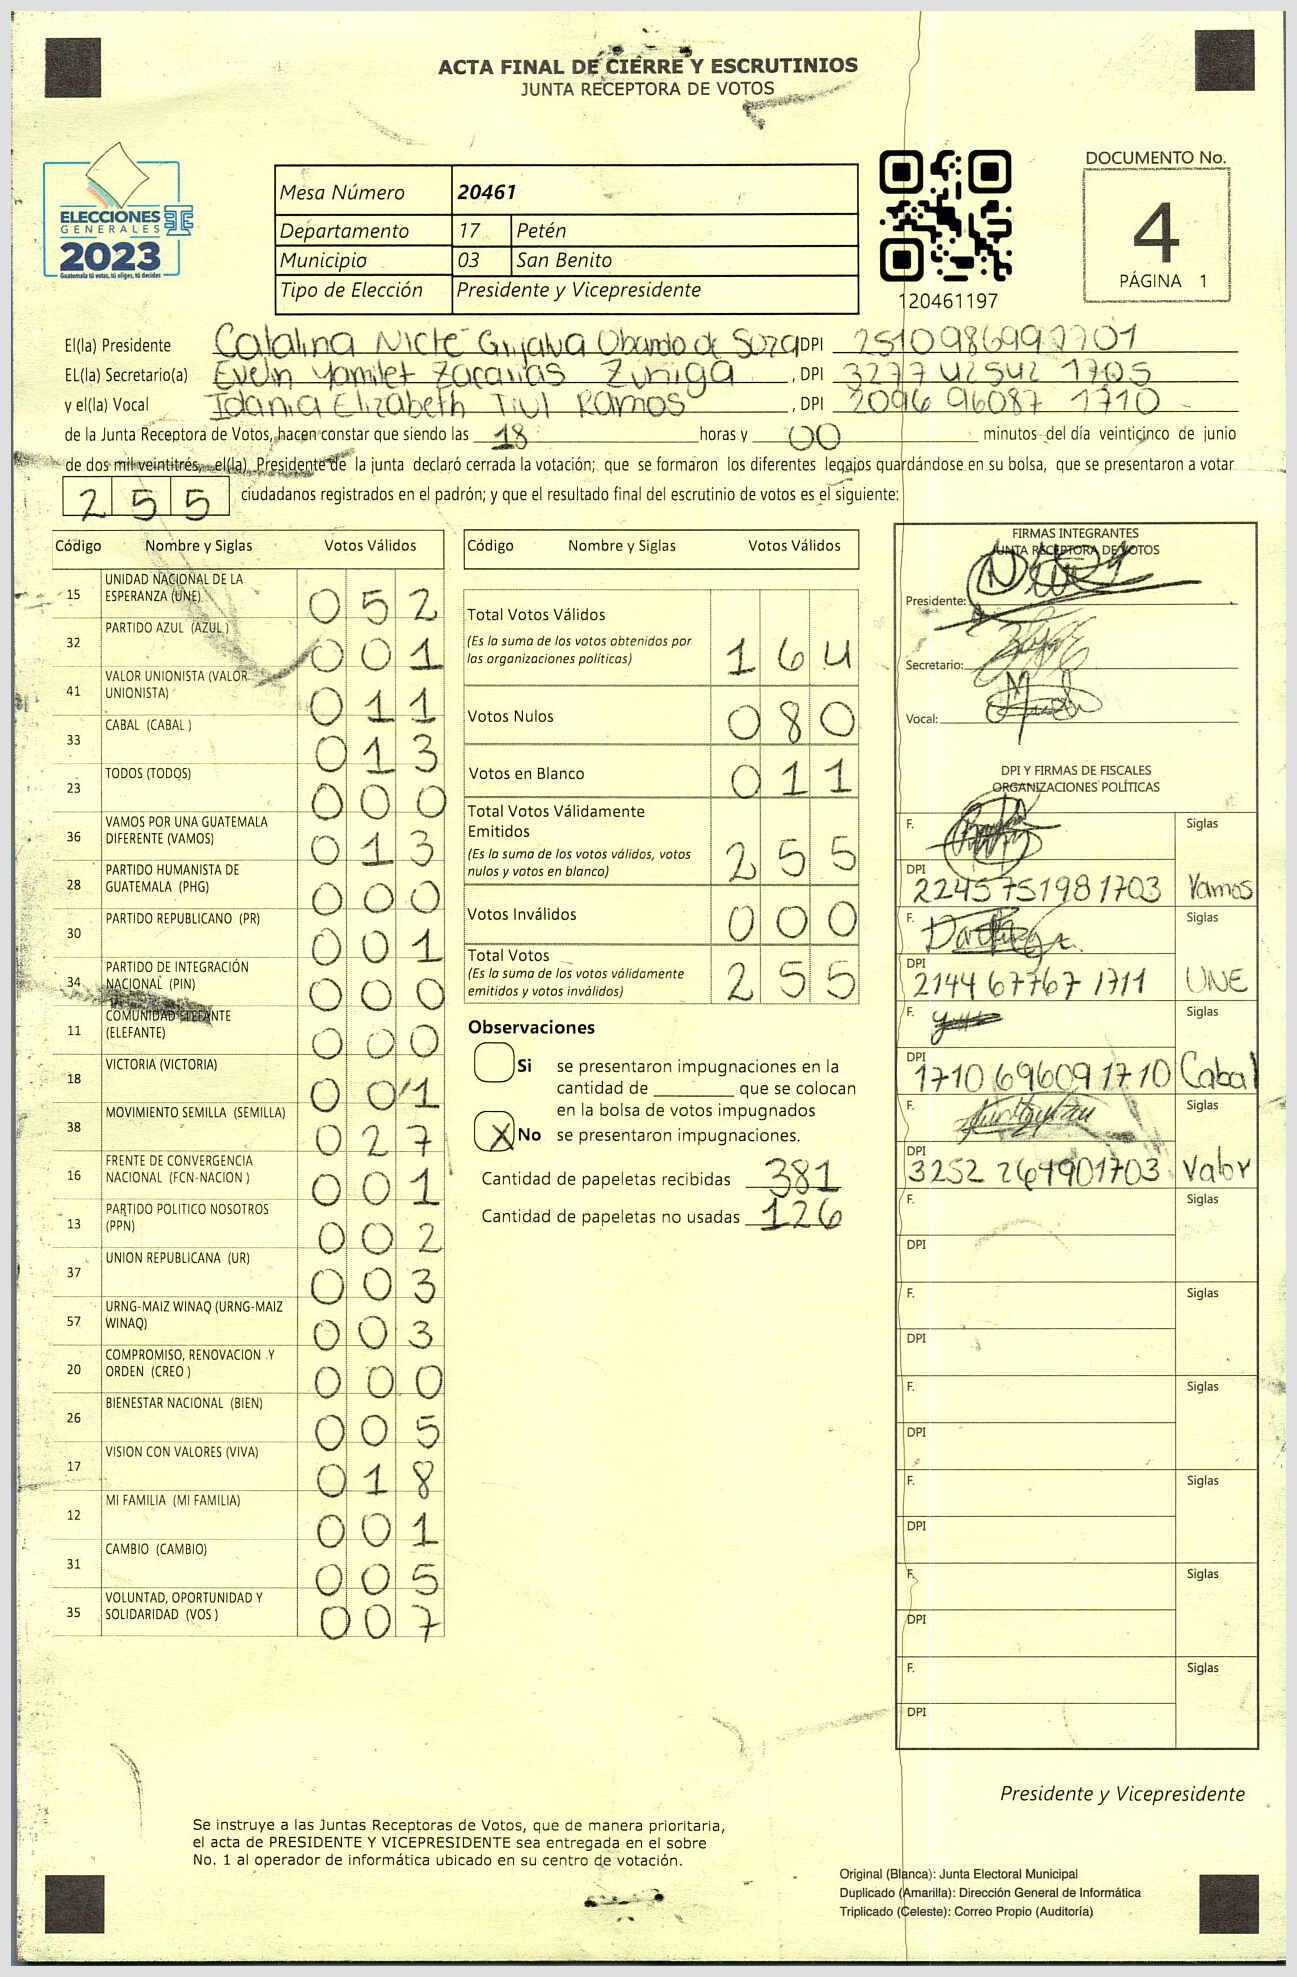 ACTA FINAL DE CIERRE Y ESCRUTINIOS
JUNTA RECEPTORA DE VOTOS
ELECCIONES
GENERALES
2023
Guatemala tú votas, tú eliges, tú decides
Mesa Número 20461
Departamento 17 Petén
Municipio 03 San Benito
Tipo de Elección Presidente y Vicepresidente
120461197
DOCUMENTO No.
4
PÁGINA 1
El(la) Presidente Catalina Nicté Grijalva Obando de Soza DPI
EL(la) Secretario(a) Evelin Yamilet Zacarias Zuñiga, DPI 3277 42542 1705
y el(la) Vocal Idania Elizabeth Tiul Ramos, DPI 2096 96087 1710
de la Junta Receptora de Votos, hacen constar que siendo las 18 horas y 00 minutos del día veinticinco de junio
de dos mil veintitrés, el(la) Presidente de la junta declaró cerrada la votación; que se formaron los diferentes legajos guardándose en su bolsa, que se presentaron a votar
255 ciudadanos registrados en el padrón; y que el resultado final del escrutinio de votos es el siguiente:
Código Nombre y Siglas Votos Válidos
15 UNIDAD NACIONAL DE LA ESPERANZA (UNE) 052
32 PARTIDO AZUL (AZUL ) 001
41 VALOR UNIONISTA (VALOR UNIONISTA) 011
33 CABAL (CABAL ) 013
23 TODOS (TODOS) 000
36 VAMOS POR UNA GUATEMALA DIFERENTE (VAMOS) 013
28 PARTIDO HUMANISTA DE GUATEMALA (PHG) 000
30 PARTIDO REPUBLICANO (PR) 001
34 PARTIDO DE INTEGRACIÓN NACIONAL (PIN) 000
11 COMUNIDAD ELEFANTE (ELEFANTE) 000
18 VICTORIA (VICTORIA) 001
38 MOVIMIENTO SEMILLA (SEMILLA) 027
16 FRENTE DE CONVERGENCIA NACIONAL (FCN-NACION ) 001
13 PARTIDO POLITICO NOSOTROS (PPN) 002
37 UNION REPUBLICANA (UR) 003
57 URNG-MAIZ WINAQ (URNG-MAIZ WINAQ) 003
20 COMPROMISO, RENOVACION Y ORDEN (CREO ) 000
26 BIENESTAR NACIONAL (BIEN) 005
17 VISION CON VALORES (VIVA) 018
12 MI FAMILIA (MI FAMILIA) 001
31 CAMBIO (CAMBIO) 005
35 VOLUNTAD, OPORTUNIDAD Y SOLIDARIDAD (VOS ) 007
Código Nombre y Siglas Votos Válidos
Total Votos Válidos 164
(Es la suma de los votos obtenidos por
las organizaciones políticas)
Votos Nulos 080
Votos en Blanco 011
Total Votos Válidamente
Emitidos 255
(Es la suma de los votos válidos, votos
nulos y votos en blanco)
Votos Inválidos 000
Total Votos 255
(Es la suma de los votos válidamente
emitidos y votos inválidos)
Observaciones
Si se presentaron impugnaciones en la
cantidad de ________ que se colocan
en la bolsa de votos impugnados
X No se presentaron impugnaciones.
Cantidad de papeletas recibidas 381
Cantidad de papeletas no usadas 126
FIRMAS INTEGRANTES
JUNTA RECEPTORA DE VOTOS
Presidente:
Secretario:
Vocal:
DPI Y FIRMAS DE FISCALES
ORGANIZACIONES POLÍTICAS
F. Siglas
DPI 2245751981703 Vamos
F. Siglas
DPI 2144 67767 1711 UNE
F. Siglas
DPI 1710 69609 1710 Cabal
F. Siglas
DPI 3252 264901703 Valor
F. Siglas
DPI
F. Siglas
DPI
F. Siglas
DPI
F. Siglas
DPI
F. Siglas
DPI
F. Siglas
DPI
Presidente y Vicepresidente
Se instruye a las Juntas Receptoras de Votos, que de manera prioritaria,
el acta de PRESIDENTE Y VICEPRESIDENTE sea entregada en el sobre
No. 1 al operador de informática ubicado en su centro de votación.
Original (Blanca): Junta Electoral Municipal
Duplicado (Amarilla): Dirección General de Informática
Triplicado (Celeste): Correo Propio (Auditoría)